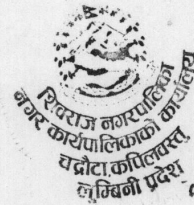 शिवराज नगरपालिका
नगर कार्यपालिकाको कार्यालय
चन्द्रौटा, कपिलवस्तु
लुम्बिनी प्रदेश